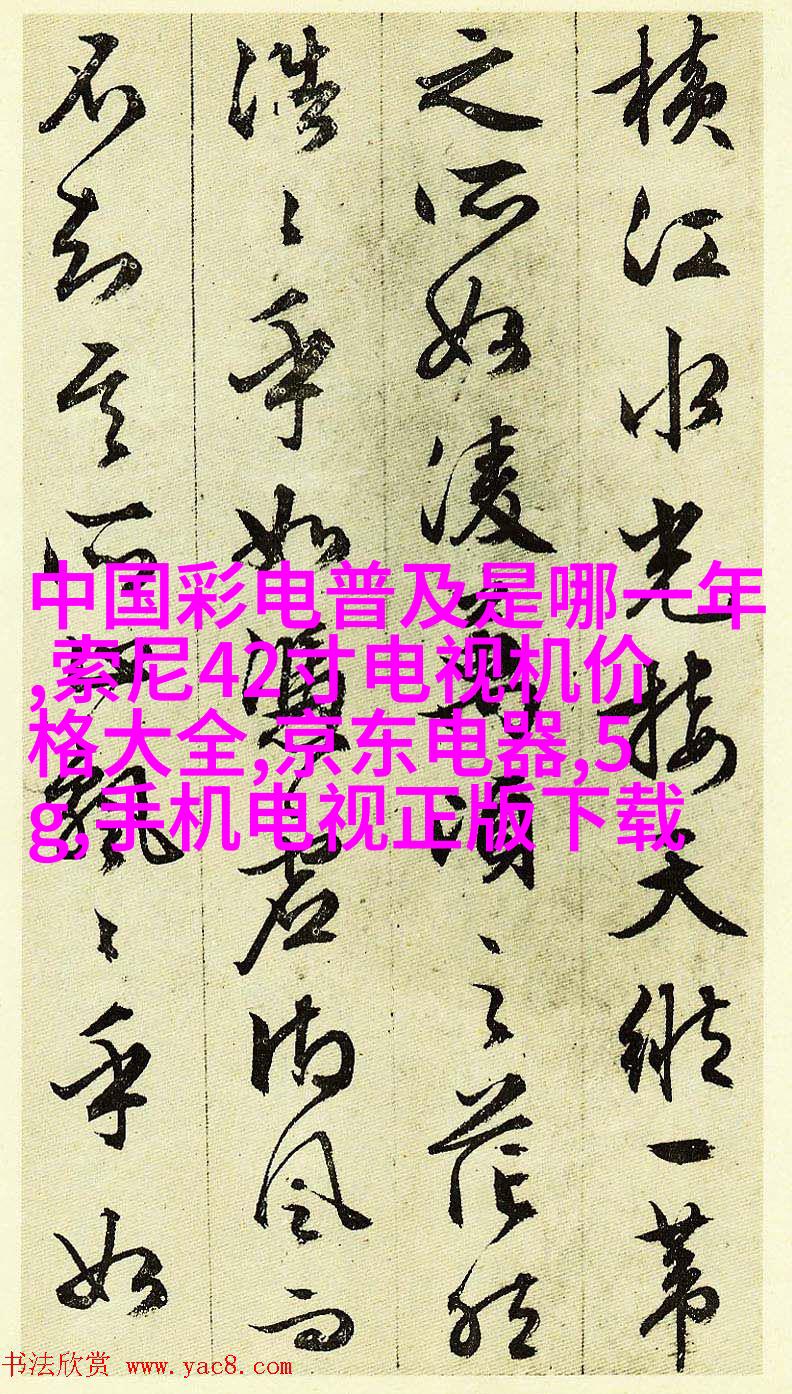 横江水光接天縱一葦
之所如淩萬頃之茫然
浩〻乎如馮虛御風而
不知其所止飄〻乎如
中国彩电普及是哪一年
,索尼42寸电视机价
格大全,京东电器,5
g,手机电视正版下载
书法欣赏 www.yac8.com